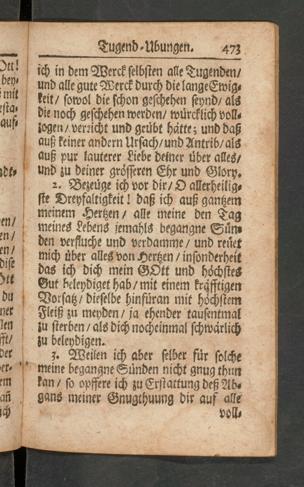 Tugend-Ubungen. 473
ich in dem Werck selbsten alle Tugenden/
und alle gute Werck durch die lange Ewig-
keit/ sowol die schon geschehen seynd/ als
die noch geschehen werden/ würcklich voll-
zogen/ verzicht und geübt hätte; und daß
auß keiner andern Ursach/ und Antrib/ als
auß pur lauterer Liebe deiner über alles/
und zu deiner grösseren Ehr und Glory.
2. Bezeüge ich vor dir/ O allerheilig-
ste Dreyfaltigkeit! daß ich auß gantzem
meinem Hertzen/ alle meine den Tag
meines Lebens jemahls begangne Sün-
den verfluche und verdamme/ und reüet
mich über alles von Hertzen/ insonderheit
das ich dich mein GOtt und höchstes
Gut beleydiget hab/ mit einem kräfftigen
Vorsatz/ dieselbe hinfüran mit höchstem
Fleiß zu meyden/ ja ehender tausentmal
zu sterben/ als dich nocheinmal schwärlich
zu beleydigen.
3. Weilen ich aber selber für solche
meine begangne Sünden nicht gnug thun
kan/ so opffere ich zu Erstattung deß Ab-
gans meiner Gnugthuung dir auf alle
voll-